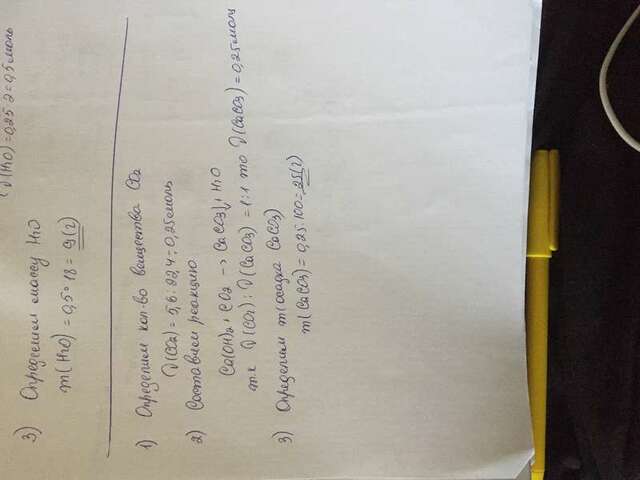 ν(H2O) = 0,25 · 2 = 0,5 моль
3) Определяем массу H2O
m(H2O) = 0,5 · 18 = 9(г)
1) Определим кол-во вещества CO2
ν(CO2) = 5,6 : 22,4 = 0,25 моль
2) Составляем реакцию
Ca(OH)2 + CO2 → CaCO3↓ + H2O
т.к ν(CO2) : ν(CaCO3) = 1:1 то ν(CaCO3) = 0,25 моль
3) Определим m(осадка CaCO3)
m(CaCO3) = 0,25 · 100 = 25(г)